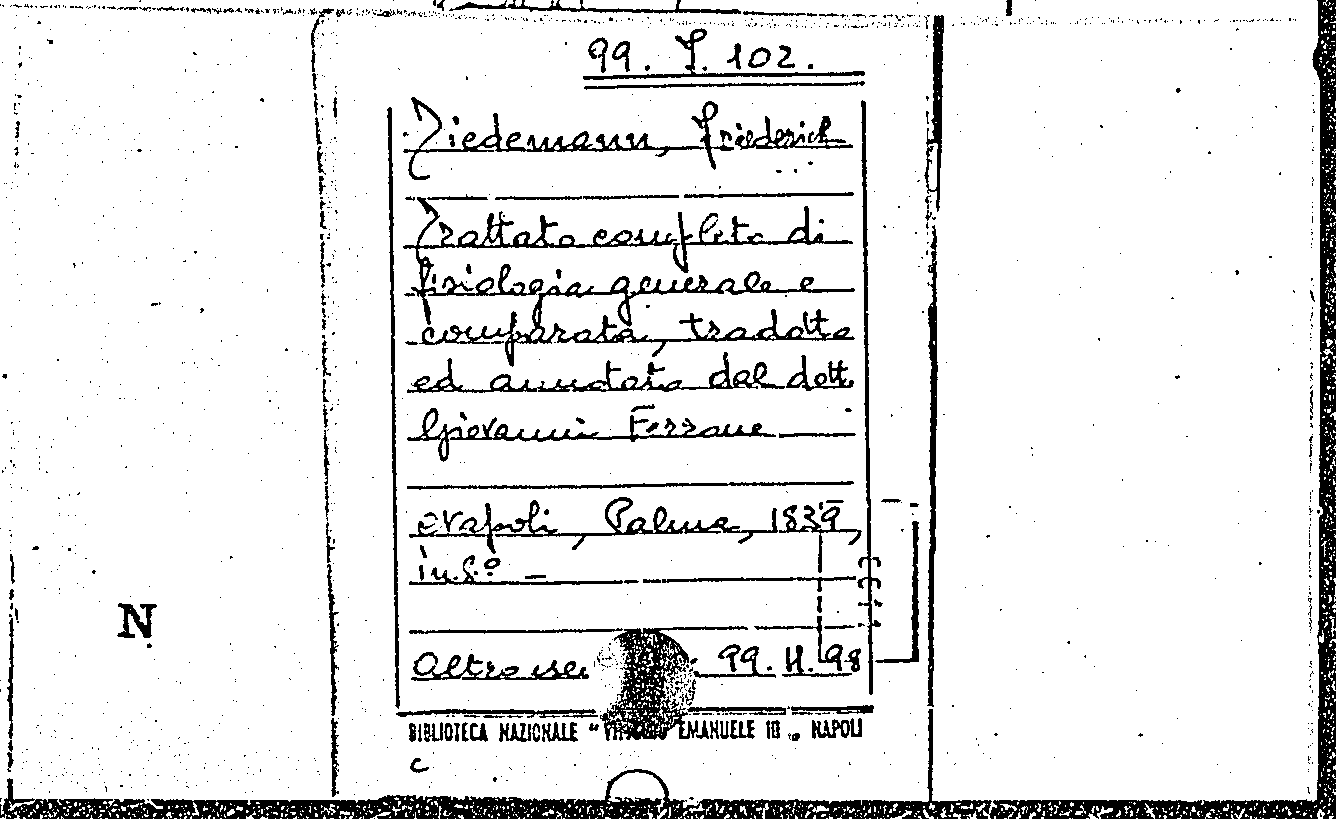 99. I. 102.
Tiedemann, Friederich
Trattato completo di
fisiologia generale e
comparata, tradotto
ed annotato dal dott.
Giovanni Ferrone
Napoli, Palma, 1839,
in 8.° –
Altro es. 99. H. 98
BIBLIOTECA NAZIONALE " VITTORIO EMANUELE III „ NAPOLI
C
N